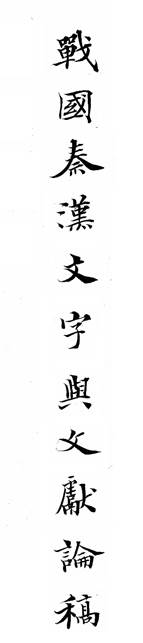 戰國秦漢文字與文獻論稿